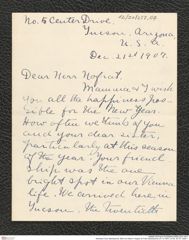 No. 6 Center Drive.
Tucson, Arizona,
U. S. A.
Dec. 21st 1909.
Dear Herr Hofrat,
Mamma & I wish
you all the happiness pos-
sible for the New Year.
How often we think of you
and your dear sister,
particularly at this season
of the year. Your friend
ship was the one
bright spot in our Vienna
life. We arrived here in
Tucson, the twentieth